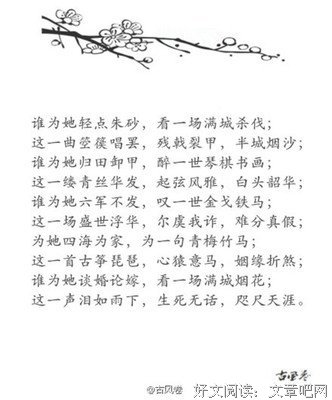 谁为她轻点朱砂，看一场满城杀伐；
这一曲箜篌唱罢，残戟裂甲，半城烟沙；
谁为她归田卸甲，醉一世琴棋书画；
这一缕青丝华发，起弦风雅，白头韶华；
谁为她六军不发，叹一世金戈铁马；
这一场盛世浮华，尔虞我诈，难分真假；
为她四海为家，为一句青梅竹马；
这一首古筝琵琶，心猿意马，姻缘折煞；
谁为她谈婚论嫁，看一场满城烟花；
这一声泪如雨下，生死无话，咫尺天涯。
古风卷
@古风卷 好文阅读：文章吧网